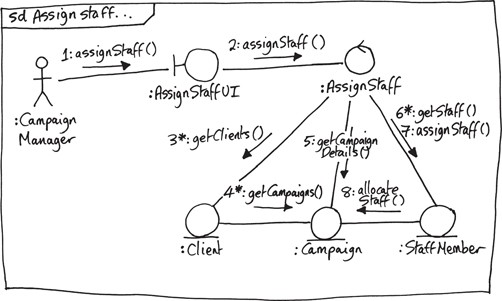 sd Assign staff...
1: assignStaff()
2: assignStaff()
:Campaign
Manager
:AssignStaffUI
:AssignStaff
3*: getClients()
5: getCampaign
Details()
6*: getStaff()
7: assignStaff()
4*: getCampaigns()
8: allocate
Staff()
:Client
:Campaign
:StaffMember